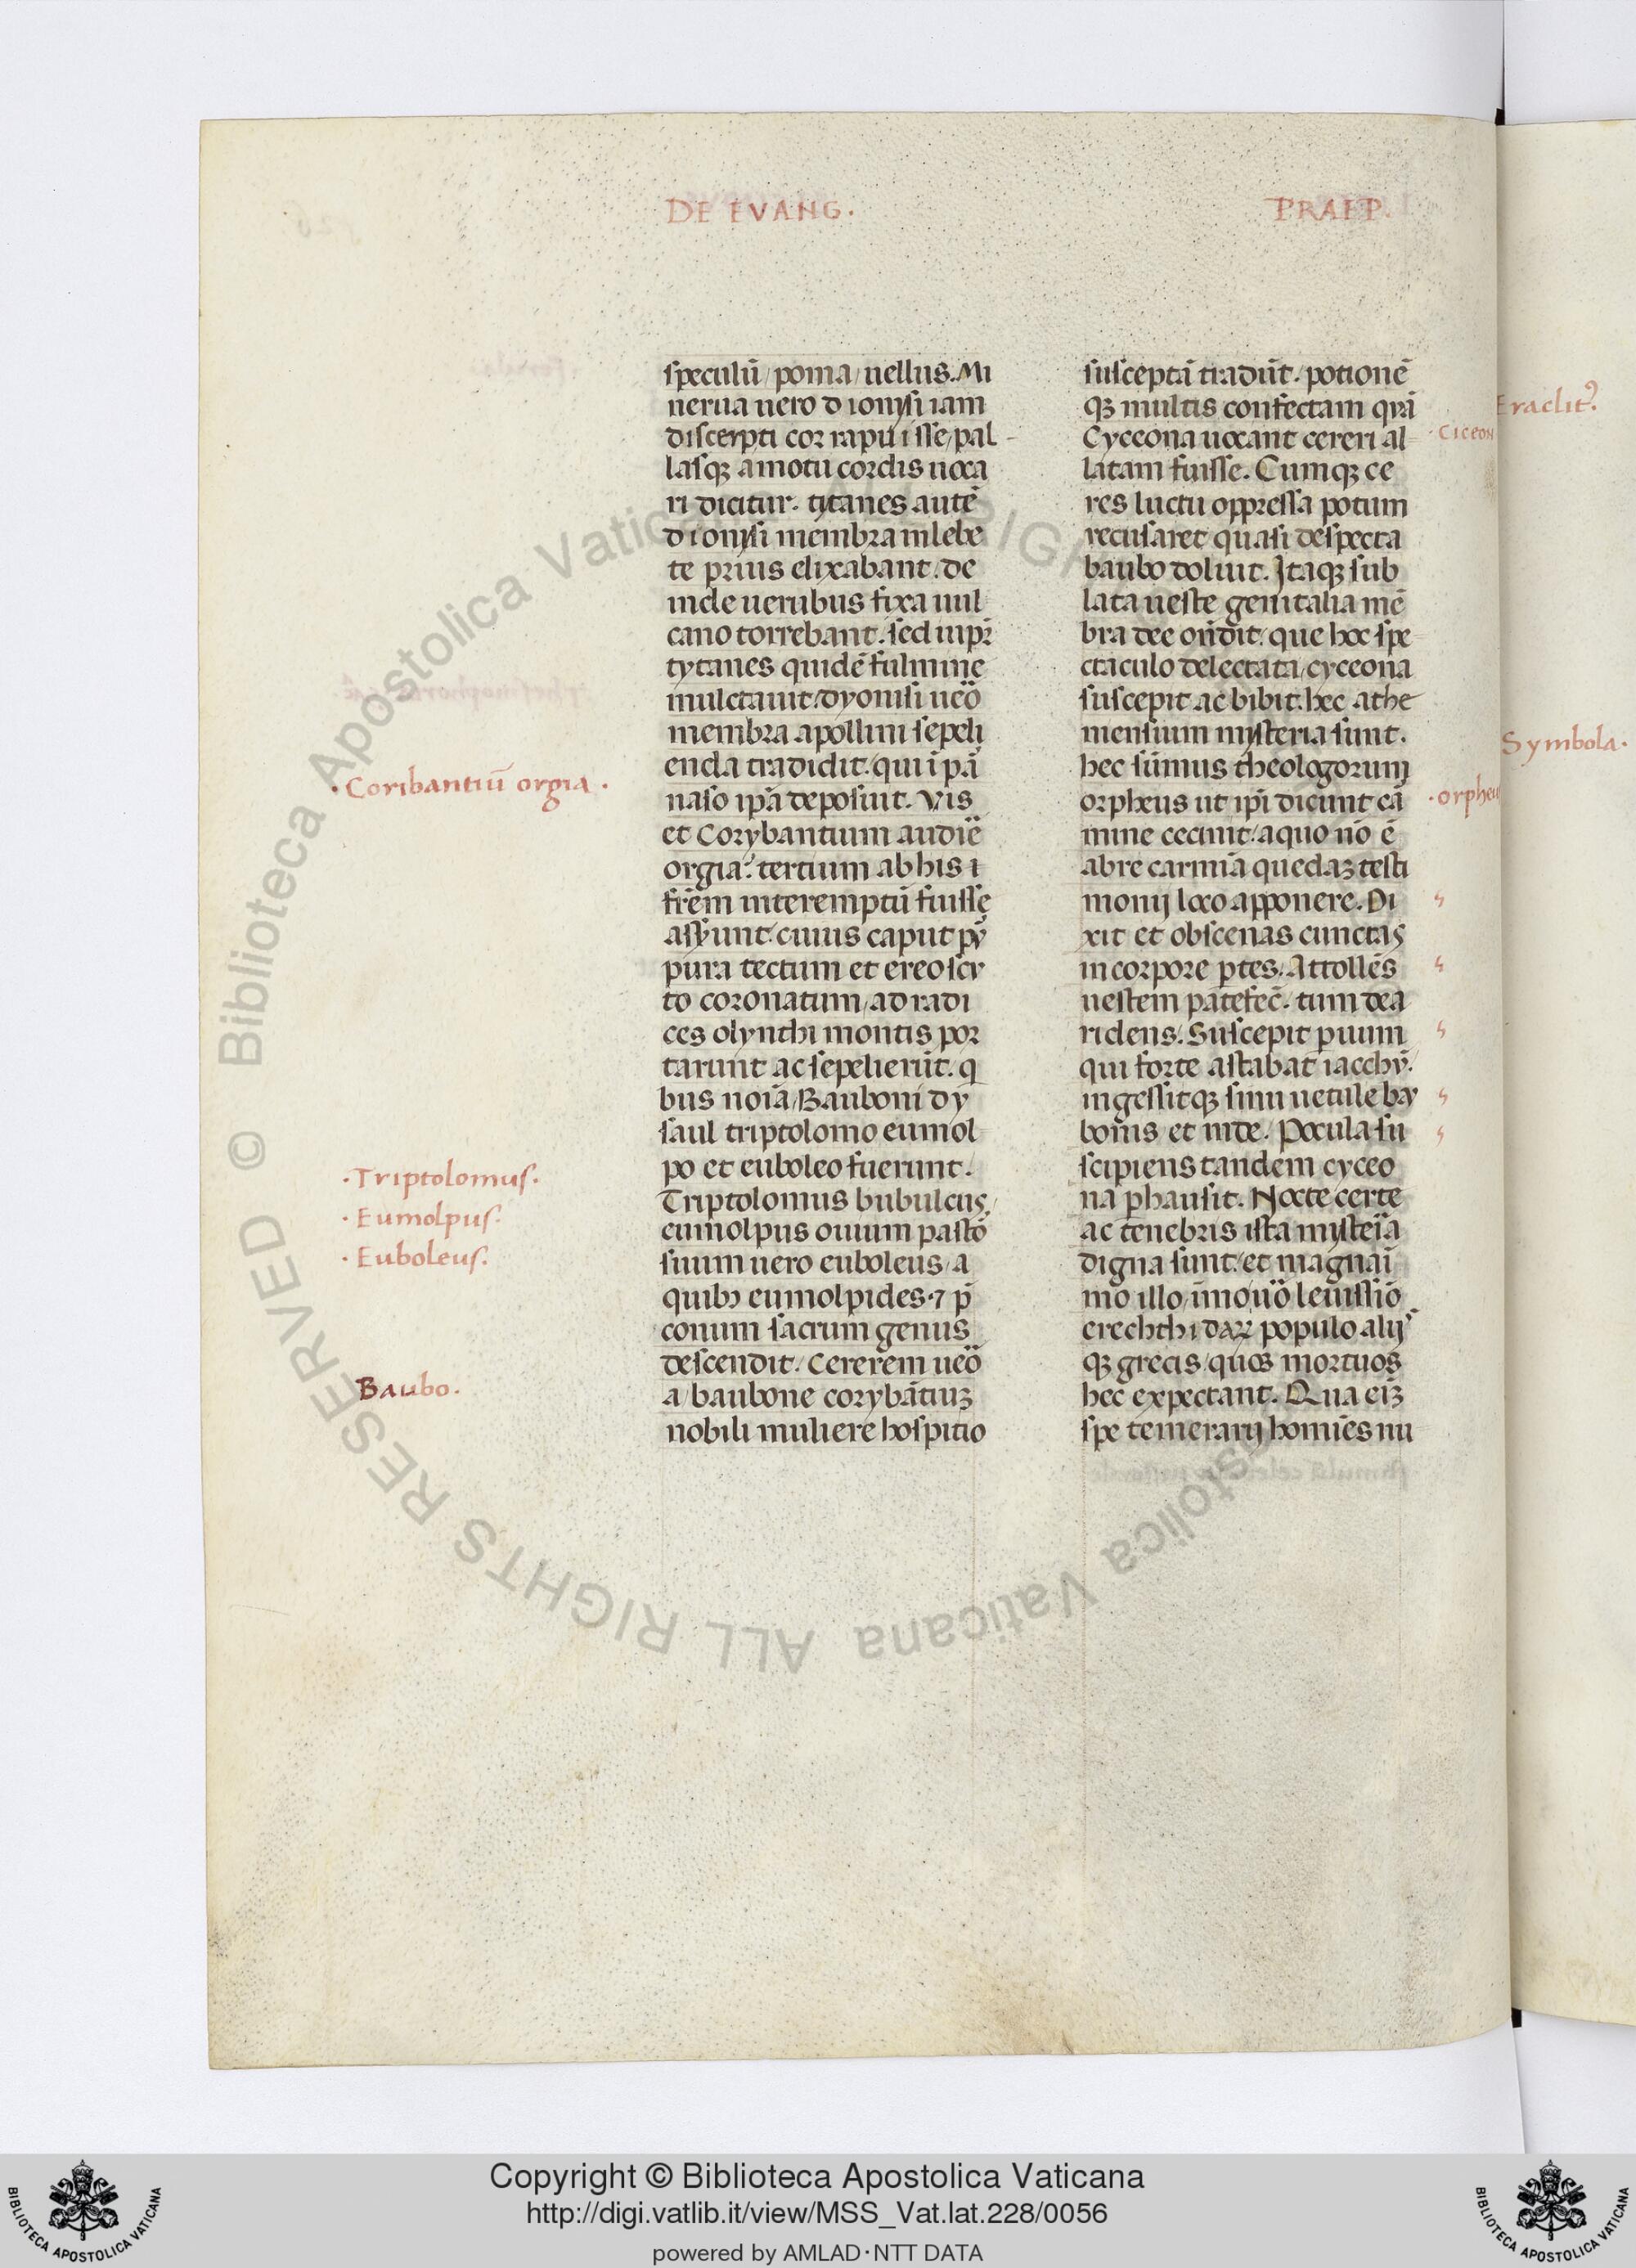 DE EVANG.
PRAEP.
speculũ / poma / uellus. Mi
nerua uero dionysi iam
discerpti cor rapuisse / pal
lasqꝫ a motu cordis uoca
ri dicitur. tytanes autẽ
dionysi membra in lebe
te prius elixabant. de
inde uerubus fixa uul
cano torrebant. sed iupr̃
tytanes quidẽ fulmine
mulctauit. dyonisi ueõ
membra apollini sepeli
enda tradidit. qui ĩ pã
naso ip̃a deposuit. Vis
et Corybantium audiẽ
orgia? tertium ab his i
fr̃em interemptũ fuisse
assunt. cuius caput pỹ
pura tectum et ereo scỹ
to coronatum / ad radi
ces olynthi montis por
tarunt ac sepelierũt. q
bus noĩa / Bauboni dy
saul triptolomo eumol
po et euboleo fuerunt.
Triptolomus bubulcus,
eumolpus ouium pastõ
suum uero euboleus / a
quibꝰ eumolpides ⁊ p̃
conum sacrum genus
descendit. Cererem ueõ
a baubone corybãtiuꝫ
nobili muliere hospitio
susceptã tradũt. potionẽ
qꝫ multis confectam quã
Cyceona uocant cereri al
latam fuisse. Cumqꝫ ce
res luctu oppressa potum
recusaret quasi despecta
baubo doluit. Itaqꝫ sub
lata ueste genitalia mẽ
bra dee oñdit / que hoc spe
ctaculo delectata / cyceona
suscepit ac bibit. hec athe
niensium mysteria sunt.
hec sũmus theologorum
orpheus ut ip̃i dicunt cã
mine cecinit / a quo nõ ẽ
ab re carmĩa quedaꝫ testi
monij loco apponere. Di
xit et obscenas cunctas
in corpore ptes. Attollẽs
uestem patefec̃. tum dea
ridens. Suscepit puum
qui forte astabat iacchũ.
ingessitqꝫ sinu uetule bau
bonis et inde. Pocula su
scipiens tandem cyceo
na phausit. Nocte certe
ac tenebris ista mysteĩa
digna sunt. et magnaĩ
mo illo, ĩmo uõ leuissiõ
erechthidaꝝ populo alijs
qꝫ grecis / quos mortuos
hec expectant. Qua eiꝫ
spe temerarij homiẽs nu
· Coribantiũ orgia ·
· Triptolomus.
· Eumolpus.
· Euboleus.
Baubo.
Eraclitꝰ.
· Ciceon
Symbola.
· orpheu
© Biblioteca Apostolica Vaticana ALL RIGHTS RESERVED
Copyright © Biblioteca Apostolica Vaticana
http://digi.vatlib.it/view/MSS_Vat.lat.228/0056
powered by AMLAD・NTT DATA
BIBLIOTECA APOSTOLICA VATICANA
BIBLIOTECA APOSTOLICA VATICANA